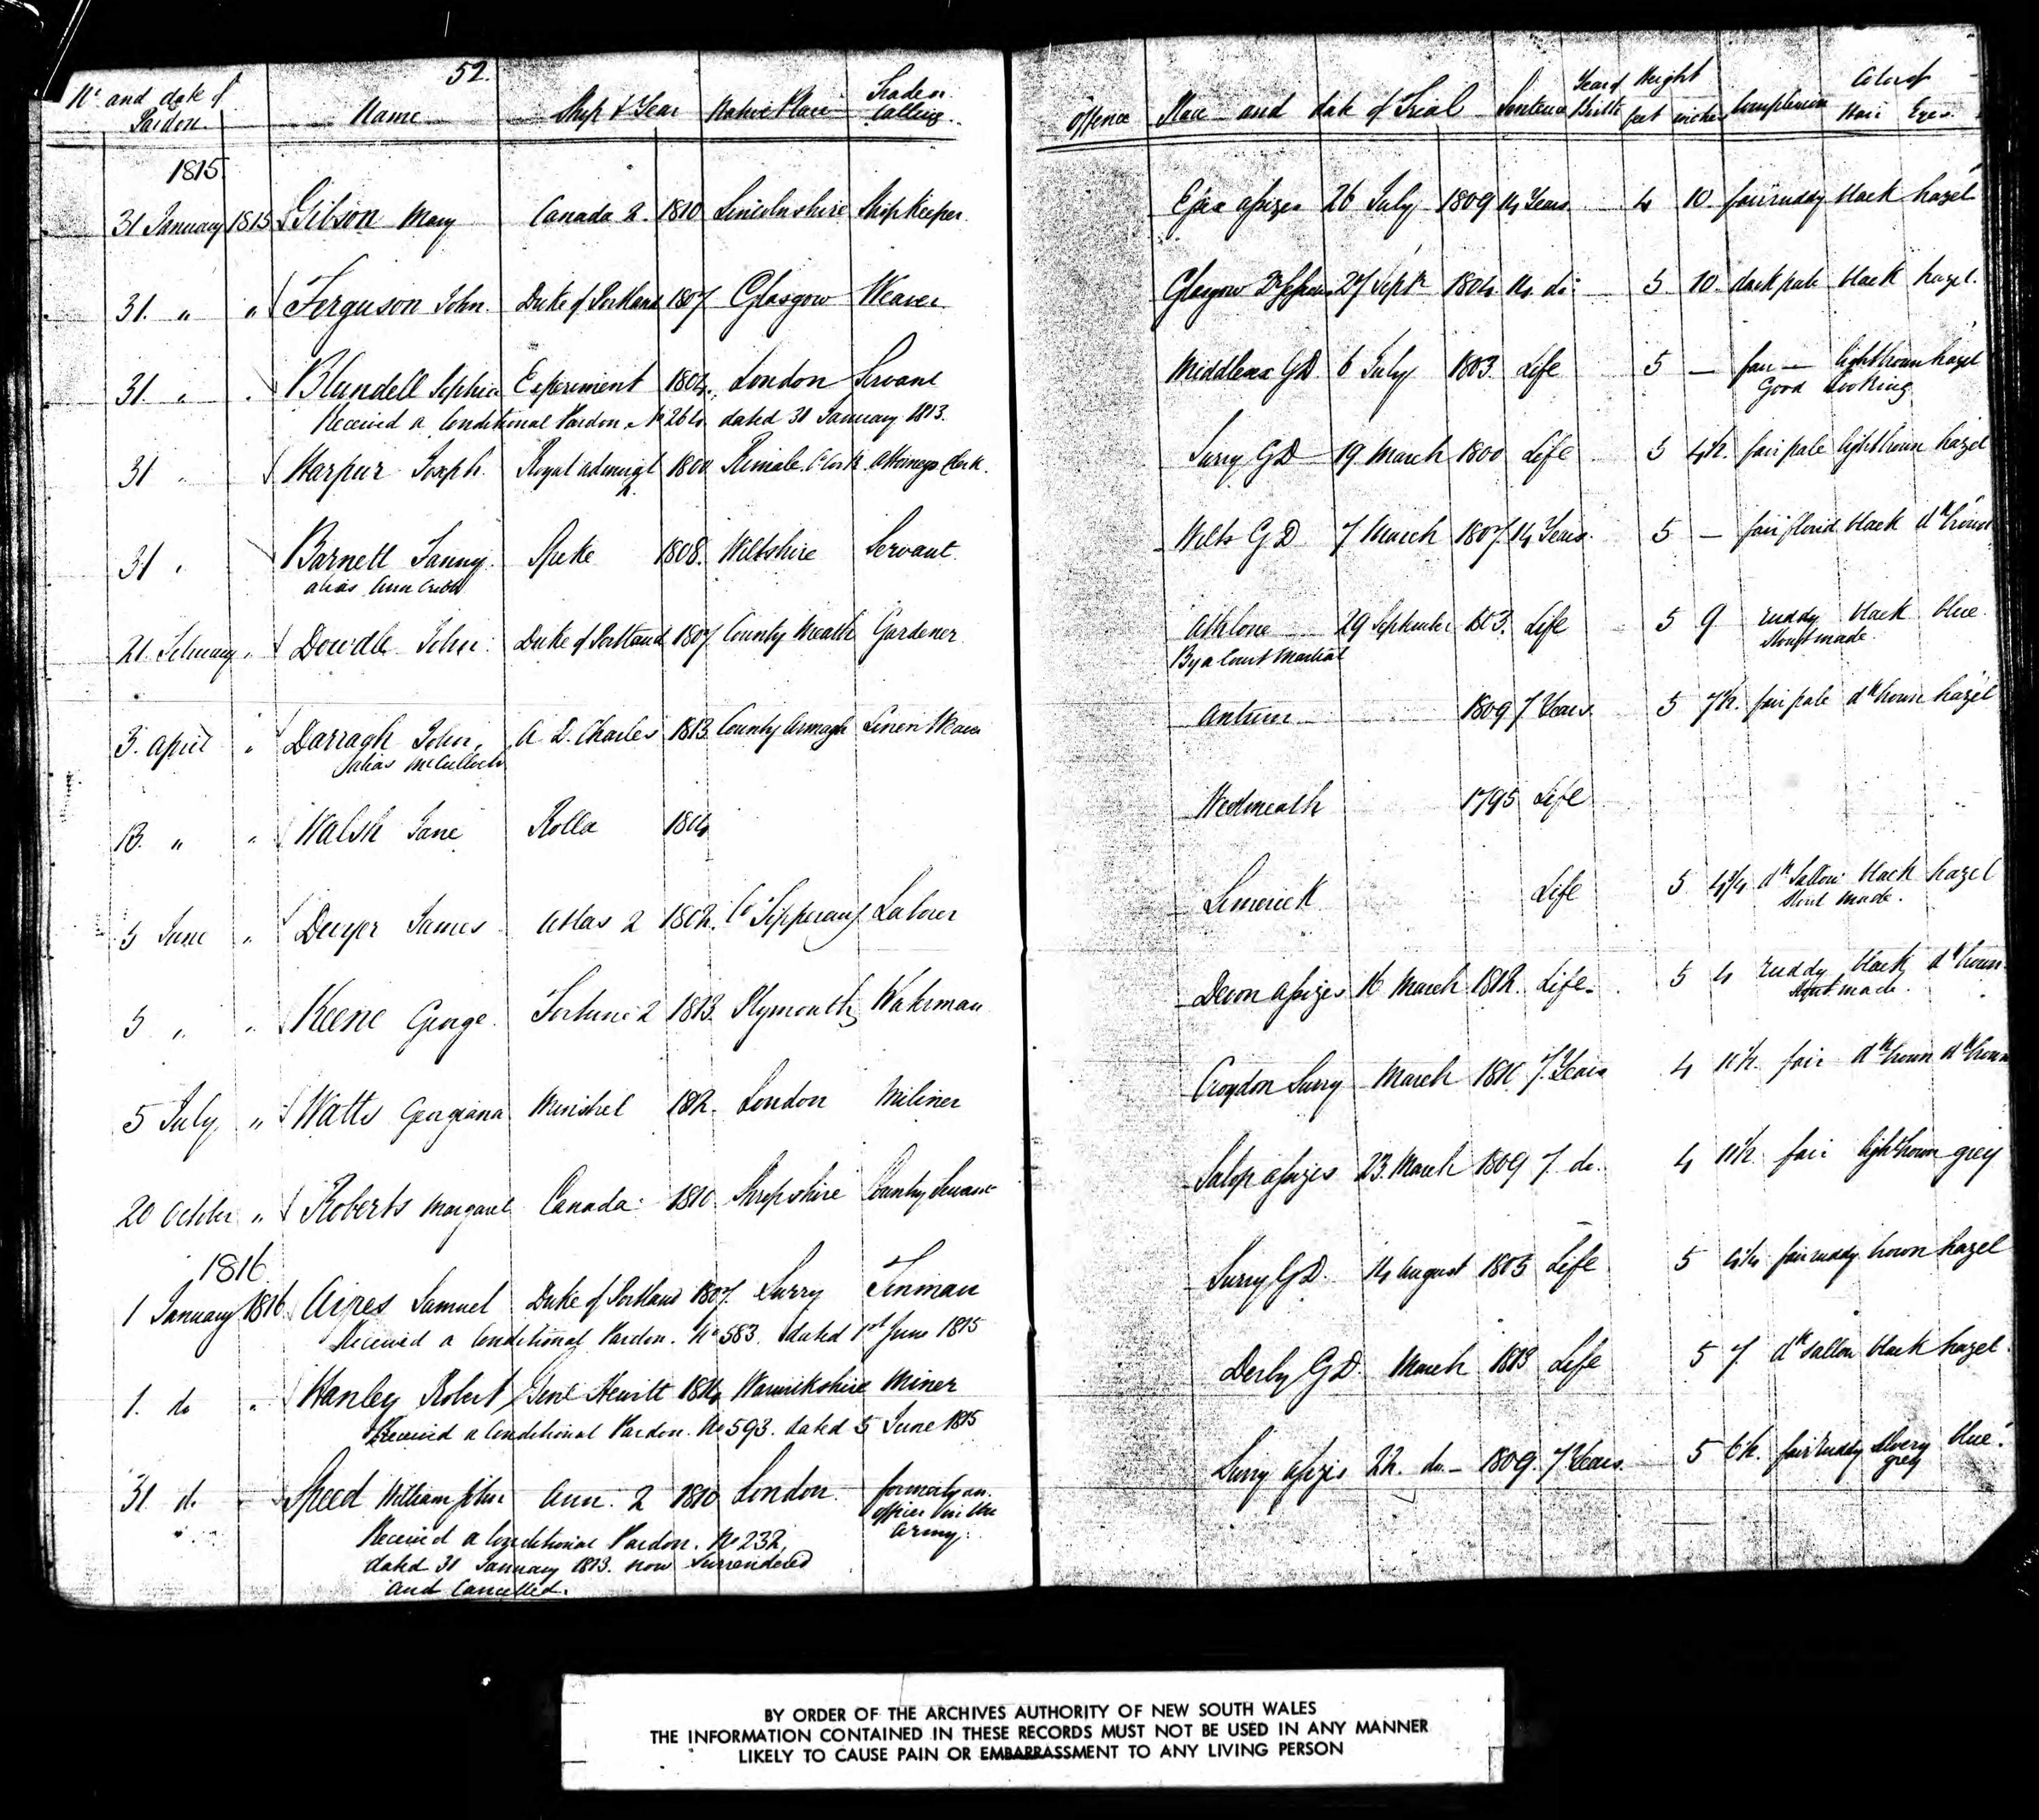 52.
No. and date of Pardon. Name Ship & Year Native Place Trade or Calling Offence Place and date of Trial Sentence Year of Birth Height feet inches Complexion Color of Hair Eyes.
1815
31 January 1815 Gibson Mary Canada 2. 1810 Lincolnshire Shopkeeper. Essex assizes 26 July 1809 14 Years. 4 10. fair ruddy black hazel
31. " " Ferguson John. Duke of Portland 1807 Glasgow Weaver Glasgow 27 Septr. 1804 14 do. 5 10. dark pale black hazel.
31. " " Blundell Sophia Experiment 1804. London Servant Middlesex GD. 6 July 1803. Life 5 — fair — light brown hazel
Good Looking
Received a Conditional Pardon No 264 dated 31 January 1813.
31 " Harpur Joseph. Royal admiral 1800 Attorneys Clerk. Surry GD 19 March 1800 Life 5 4½. fair pale light brown hazel
31 " Barnett Fanny. Speke 1808. Wiltshire Servant Wilts GD 7 March 1807. 14 Years. 5 — fair florid black dk brown
alias Ann
21. February " Dowdle John Duke of Portland 1807. County Meath Gardener Athlone 29 September 1803. Life 5 9 ruddy black blue
By a Court Martial stout made
3. April " Darragh John, A. D. Charles 1813. County Armagh Linen Weaver Antrim 1809 7 Years. 5 7½. fair pale dk brown hazel
alias McCulloch
13. " " Walsh Jane Rolla 1804 Westmeath 1795 Life
5 June " Dwyer James Atlas 2 1802. Co Tipperary Laborer Limerick Life 5 4¾ dk Sallow black hazel
Stout made.
5 " " Keene George. Fortune 2 1813. Plymouth Devon assizes 16 March 1812. Life. 5 4 ruddy black dk brown
stout made.
5 July " Watts Georgiana Minstrel 1812. London Miliner Croydon Surry March 1811 7 Years 4 11½. fair dk brown dk brown
20 October " Roberts Margaret Canada 1810 Shropshire Country Servant Salop assizes 23. March 1809 7. do. 4 11½. fair light brown grey
1816.
1 January 1816 Aires Samuel Duke of Portland 1807. Surry Tinman Surry GD. 14 August 1805 Life 5 4¼ fair ruddy brown hazel
Received a Conditional Pardon. No 583. dated 1st June 1815
1. do " Hanley Robert Genl Hewitt 1814 Warwickshire Miner Derby GD. March 1813 Life 5 7. dk sallow black hazel.
Received a Conditional Pardon. No 593. dated 5 June 1815
31. do " Speed William John Ann. 2 1810 London. formerly an Surry assizes 22. do. 1809. 7 Years. 5 6½. fair ruddy silvery blue.
officer in the grey
Army.
Received a Conditional Pardon. No 232,
dated 31 January 1813. now Surrendered
and Cancelled.
BY ORDER OF THE ARCHIVES AUTHORITY OF NEW SOUTH WALES
THE INFORMATION CONTAINED IN THESE RECORDS MUST NOT BE USED IN ANY MANNER
LIKELY TO CAUSE PAIN OR EMBARRASSMENT TO ANY LIVING PERSON